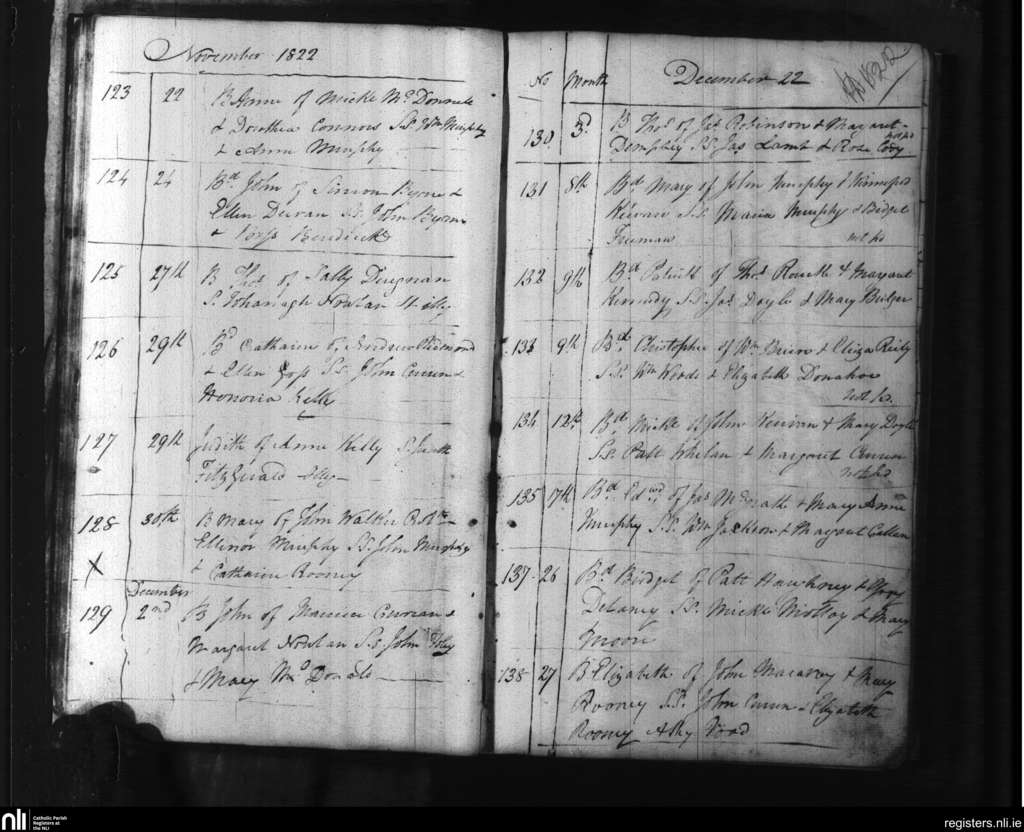 November 1822
123 22 B Anne of Mickl McDonnele
& Dorothea Connors Ss. Wm Murphy
& Anne Murphy
124 24 Bd. John of Simon Byrne &
Ellen Ss. John Byrne
&
125 27th B Thos of Patty Duignan
S. Nowlan
126 29th Bd Catharien of Andrew Redmond
& Elan Ss John Curren &
Honoria Kelly
127 29th Judith of Anne Kelly S. Judith
FitzGerald
128 30th B Mary of John Walker &
Ellinor Murphy Ss. John Murphy
X & Catharien Rooney
December
129 2nd B John of Maurice Curran &
Margaret Nowlan Ss John Foley
& Mary McDonald
No Month December 22
130 3d B Thos of Jas Robinson & Margaret
Dempsey Ss Jas Lamb & Rose
131 8th Bd Mary of John Murphy &
Keirvan Ss. Maria Murphy & Bidget
Freeman
132 9th Bd Patrick of Thos Rourk & Margaret
Kennedy Ss. Jas Doyle & Mary Bulger
133 9th Bd. Christopher of Wm Brien & Eliza Reily
Ss. Wm Woods & Elizabeth Donahoe
134 12th Bd Mickl of John Keirvan & Mary Doyle
Ss Patt Whelan & Margaret Curren
135 17th Bd Edwd of Jas McGrath & Mary Anne
Murphy Ss. Wm Jackson & Margret Cullen
137 26 Bd Bridget of Patt &
Delaney Ss. Mickl Molloy & Mary
Moon
138 27 B Elizabeth of John & Mary
Rooney Ss. John Curren & Elizabeth
Rooney
nli Catholic Parish
Registers at
the NLI
registers.nli.ie